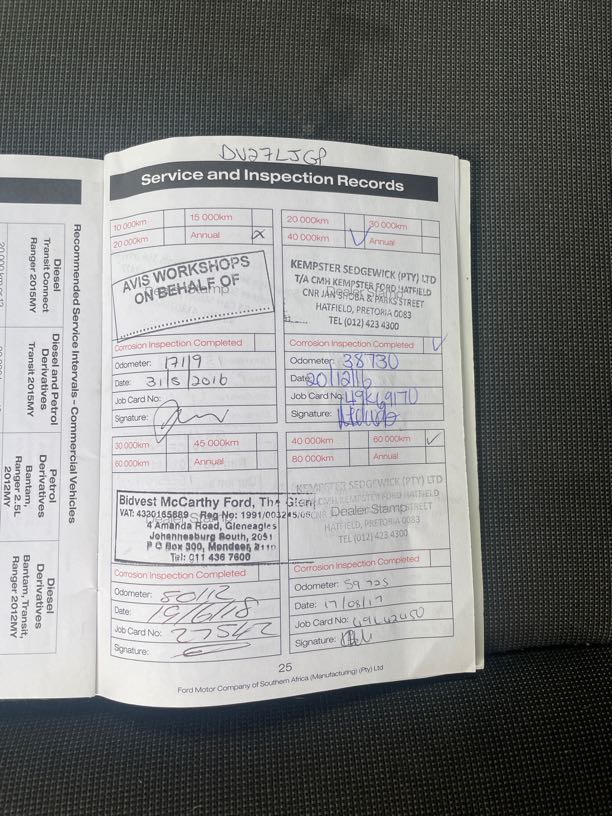 DV27LJGP
Service and Inspection Records
10 000km 15 000km
20 000km Annual x
AVIS WORKSHOPS
ON BEHALF OF
Dealer Stamp
Corrosion Inspection Completed
Odometer: 17119
Date: 31/5/2016
Job Card No:
Signature:
20 000km 30 000km
40 000km ✓ Annual
KEMPSTER SEDGEWICK (PTY) LTD
T/A CMH KEMPSTER FORD HATFIELD
CNR JAN SHOBA & PARKS STREET
HATFIELD, PRETORIA 0083
TEL (012) 423 4300
Dealer Stamp
Corrosion Inspection Completed ✓
Odometer: 38730
Date: 20/12/16
Job Card No: 49K69170
Signature:
30 000km 45 000km
60 000km Annual
Bidvest McCarthy Ford, The Glen
VAT: 4330165889 Reg No: 1991/003245/06
4 Amanda Road, Gleneagles
Johannesburg South, 2051
P O Box 300, Mondeor, 2110
Tel: 011 436 7600
Corrosion Inspection Completed
Odometer: 80112
Date: 19/6/18
Job Card No: 27542
Signature:
40 000km 60 000km ✓
80 000km Annual
KEMPSTER SEDGEWICK (PTY) LTD
T/A CMH KEMPSTER FORD HATFIELD
Dealer Stamp
HATFIELD, PRETORIA 0083
TEL (012) 423 4300
Corrosion Inspection Completed
Odometer: 59725
Date: 17/08/17
Job Card No: 49L42450
Signature:
25
Ford Motor Company of Southern Africa (Manufacturing) (Pty) Ltd
Recommended Service Intervals - Commercial Vehicles
Diesel
Transit Connect
Ranger 2015MY
Diesel and Petrol
Derivatives
Transit 2015MY
Petrol
Derivatives
Bantam,
Ranger 2.5L
2012MY
Diesel
Derivatives
Bantam, Transit,
Ranger 2012MY